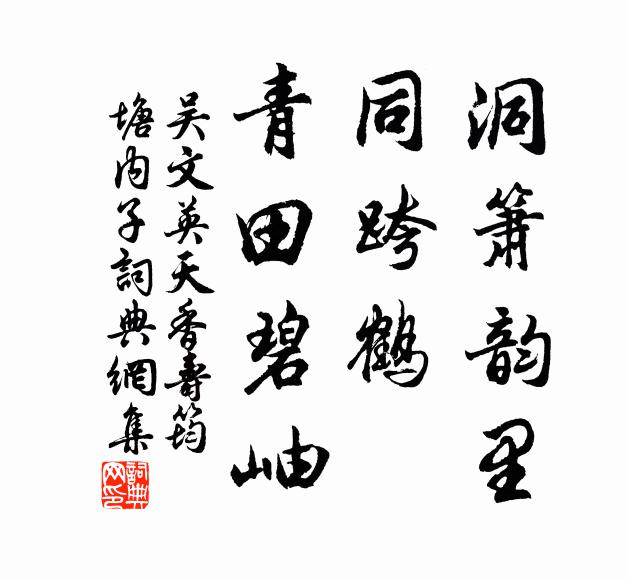 洞箫韵里
同跨鹤
青田碧岫
吴文英天香寿筠
塘内子詞典網集
詞典网印